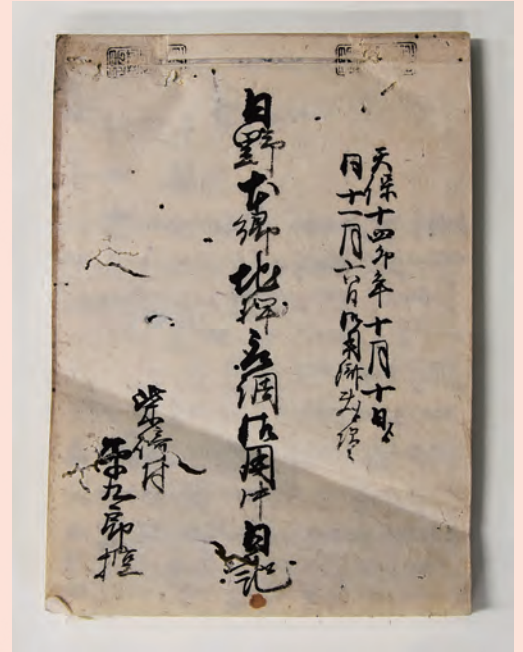 天保十四卯年十月十日ゟ
同十一月六日御用済
日野本郷地押御調御用中日記
柴崎村
平九郎控